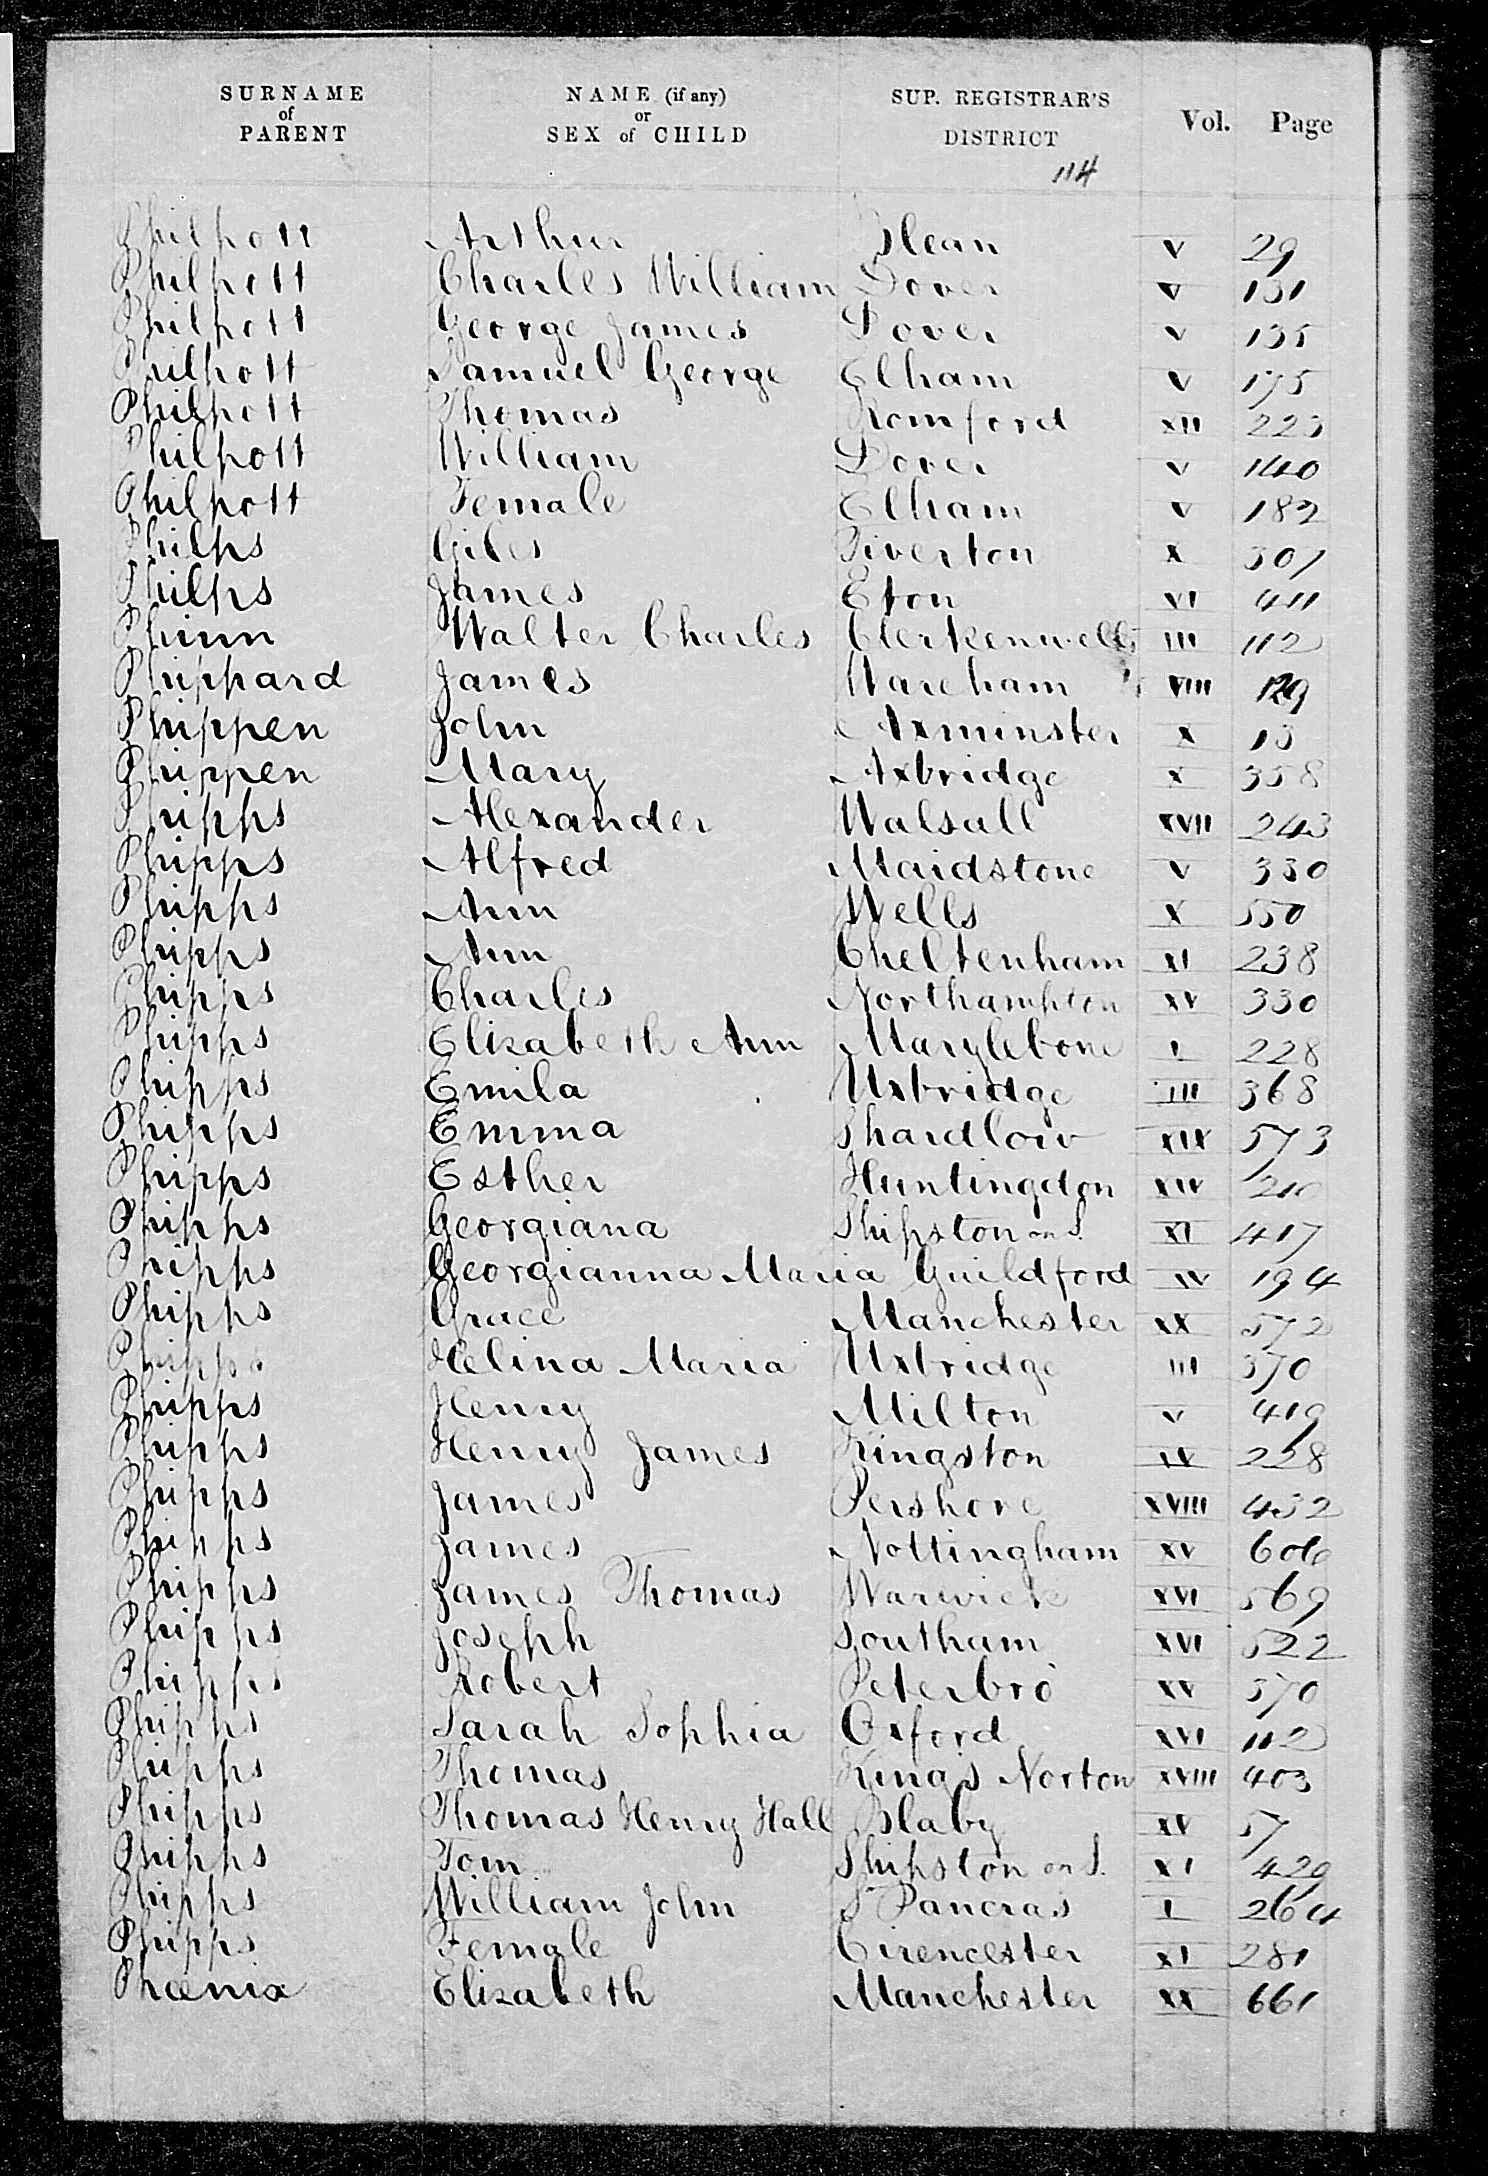 SURNAME of PARENT NAME (if any) or SEX of CHILD SUP. REGISTRAR'S DISTRICT Vol. Page
114
Philpott Arthur Blean V 29
Philpott Charles William Dover V 131
Philpott George James Dover V 135
Philpott Samuel George Elham V 175
Philpott Thomas Romford XII 223
Philpott William Dover V 140
Philpott Female Elham V 182
Philps Giles Tiverton X 301
Philps James Eton VI 411
Phinn Walter Charles Clerkenwell III 112
Phippard James Wareham VIII 129
Phippen John Axminster X 13
Phippen Mary Axbridge X 358
Phipps Alexander Walsall XVII 243
Phipps Alfred Maidstone V 330
Phipps Ann Wells X 550
Phipps Ann Cheltenham XI 238
Phipps Charles Northampton XV 330
Phipps Elizabeth Ann Marylebone I 228
Phipps Emila Uxbridge III 368
Phipps Emma Shardlow XIX 573
Phipps Esther Huntingdon XIV 210
Phipps Georgiana Shipston on S. XI 417
Phipps Georgianna Maria Guildford IV 194
Phipps Grace Manchester XX 572
Phipps Helina Maria Uxbridge III 370
Phipps Henry Milton V 419
Phipps Henry James Kingston IV 228
Phipps James Pershore XVIII 432
Phipps James Nottingham XV 606
Phipps James Thomas Warwick XVI 569
Phipps Joseph Southam XVI 522
Phipps Robert Peterbro XV 370
Phipps Sarah Sophia Oxford XVI 112
Phipps Thomas Kings Norton XVIII 403
Phipps Thomas Henry Hall Blaby XV 57
Phipps Tom Shipston on S. XI 420
Phipps William John St Pancras I 264
Phipps Female Cirencester XI 281
Phœnix Elizabeth Manchester XX 661